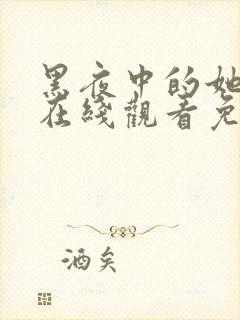 黑夜中的她
在綫觀看免
酒矣